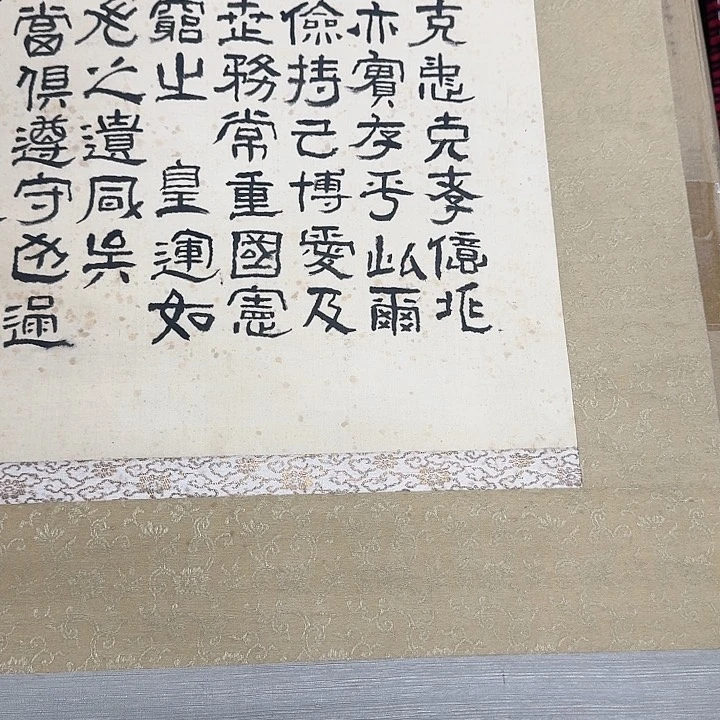 克忠克孝億兆
亦實存乎此爾
儉持己博愛及
世務常重國憲
窮之 皇運如
先之遺風矣
當俱遵守